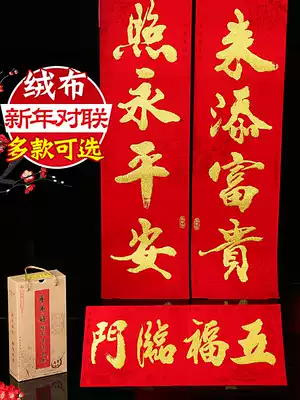 绒布
新年对联
多款可选
来添富貴
照永平安
五福臨門